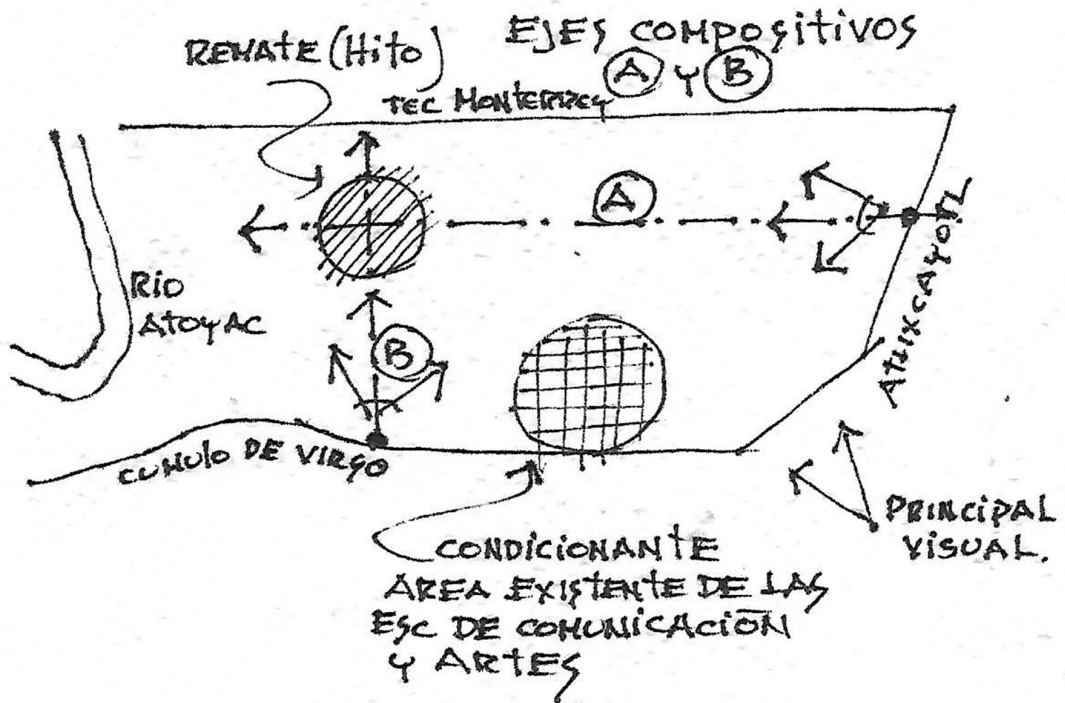 EJES COMPOSITIVOS
A Y B
REMATE (Hito)
TEC MONTERREY
A
ATLIXCAYOTL
RIO
ATOYAC
B
CUMULO DE VIRGO
PRINCIPAL
VISUAL.
CONDICIONANTE
AREA EXISTENTE DE LAS
ESC DE COMUNICACIÓN
Y ARTES